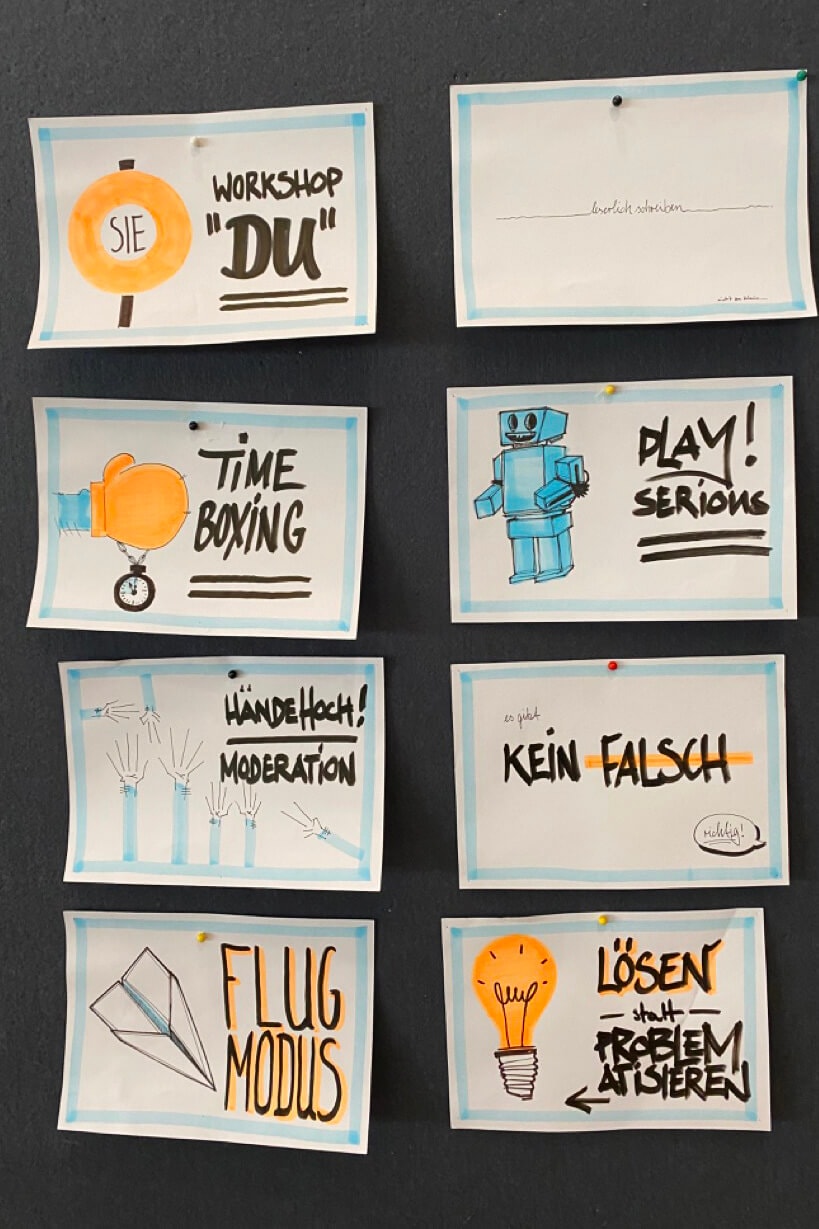 SIE
WORKSHOP
"DU"
leserlich schreiben
TIME
BOXING
PLAY!
SERIOUS
HÄNDEHOCH!
MODERATION
es gibt
KEIN FALSCH
richtig!
FLUG
MODUS
LÖSEN
— statt —
PROBLEM
ATISIEREN